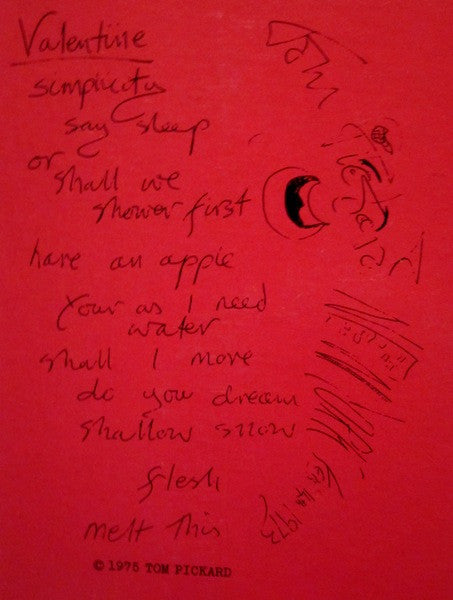 Valentine
simplicity
say sleep
or
shall we
shower first
have an apple
your as I need
water
shall I move
do you dream
shallow snow
flesh
melt this
© 1975 TOM PICKARD
Tom
Pickard
NEW YORK
1973